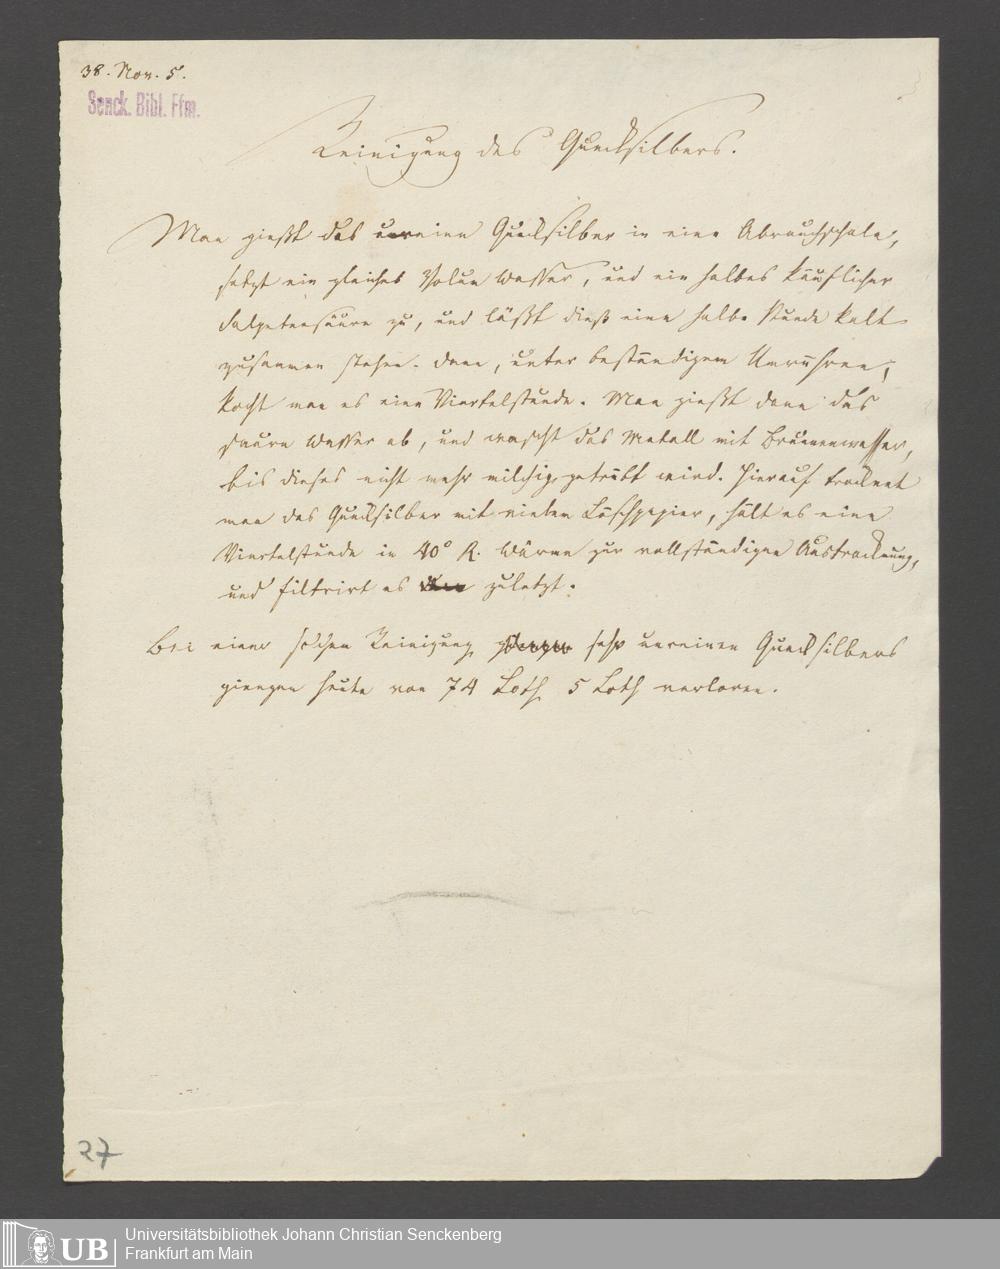 38. Nov. 5.
Senck. Bibl. Ffm.
Reinigung des Quecksilbers.
Man gießt das unreine Quecksilber in eine Abrauchschale,
setzt ein gleiches Volum Wasser, und ein halbes käuflicher
Salpetersäure zu, und läßt dieß eine halbe Stunde kalt
zusammen stehen. Dann, unter beständigem Umrühren,
kocht man es eine Viertelstunde. Man gießt dann das
saure Wasser ab, und wascht das Metall mit Brunnenwasser,
bis dieses nicht mehr milchig getrübt wird. Hierauf trocknet
man das Quecksilber mit vielem Löschpapier, hält es eine
Viertelstunde in 40° R. Wärme zur vollständigen Austrocknung,
und filtrirt es zuletzt.
Bei einer solchen Reinigung sehr unreinen Quecksilbers
giengen heute von 74 Loth 5 Loth verloren.
27
UB
Universitätsbibliothek Johann Christian Senckenberg
Frankfurt am Main